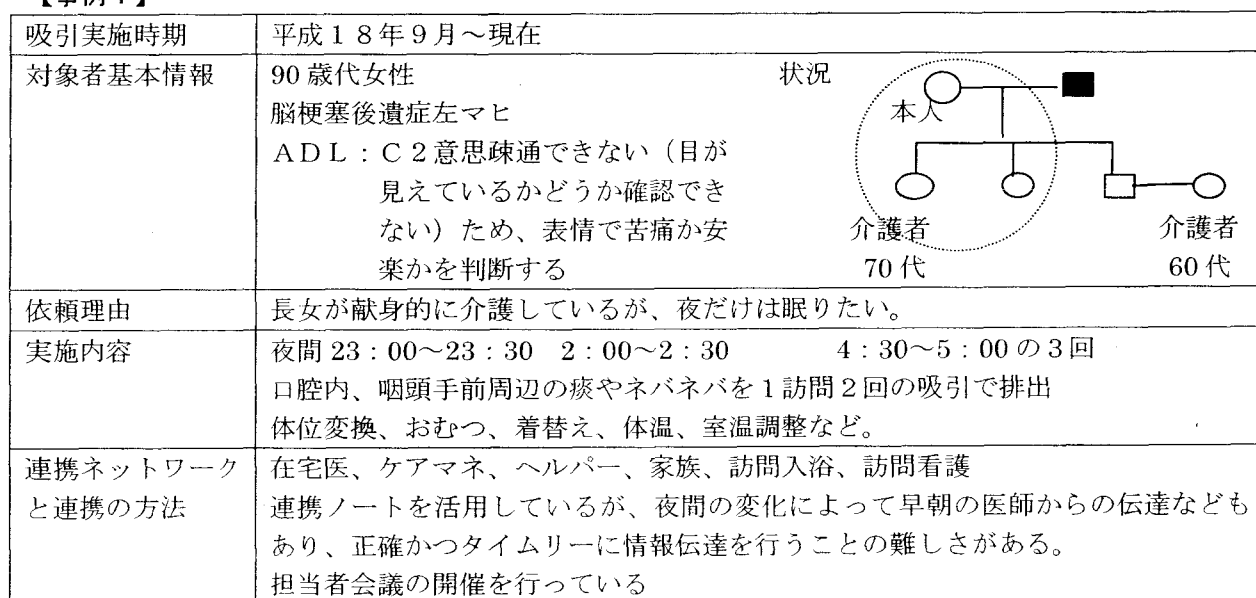 【事例1】
吸引実施時期 平成18年9月～現在
対象者基本情報 90歳代女性 状況
脳梗塞後遺症左マヒ 本人
ADL：C2意思疎通できない（目が
見えているかどうか確認でき
ない）ため、表情で苦痛か安 介護者 介護者
楽かを判断する 70代 60代
依頼理由 長女が献身的に介護しているが、夜だけは眠りたい。
実施内容 夜間23：00～23：30 2：00～2：30 4：30～5：00の3回
口腔内、咽頭手前周辺の痰やネバネバを1訪問2回の吸引で排出
体位変換、おむつ、着替え、体温、室温調整など。
連携ネットワーク 在宅医、ケアマネ、ヘルパー、家族、訪問入浴、訪問看護
と連携の方法 連携ノートを活用しているが、夜間の変化によって早朝の医師からの伝達なども
あり、正確かつタイムリーに情報伝達を行うことの難しさがある。
担当者会議の開催を行っている